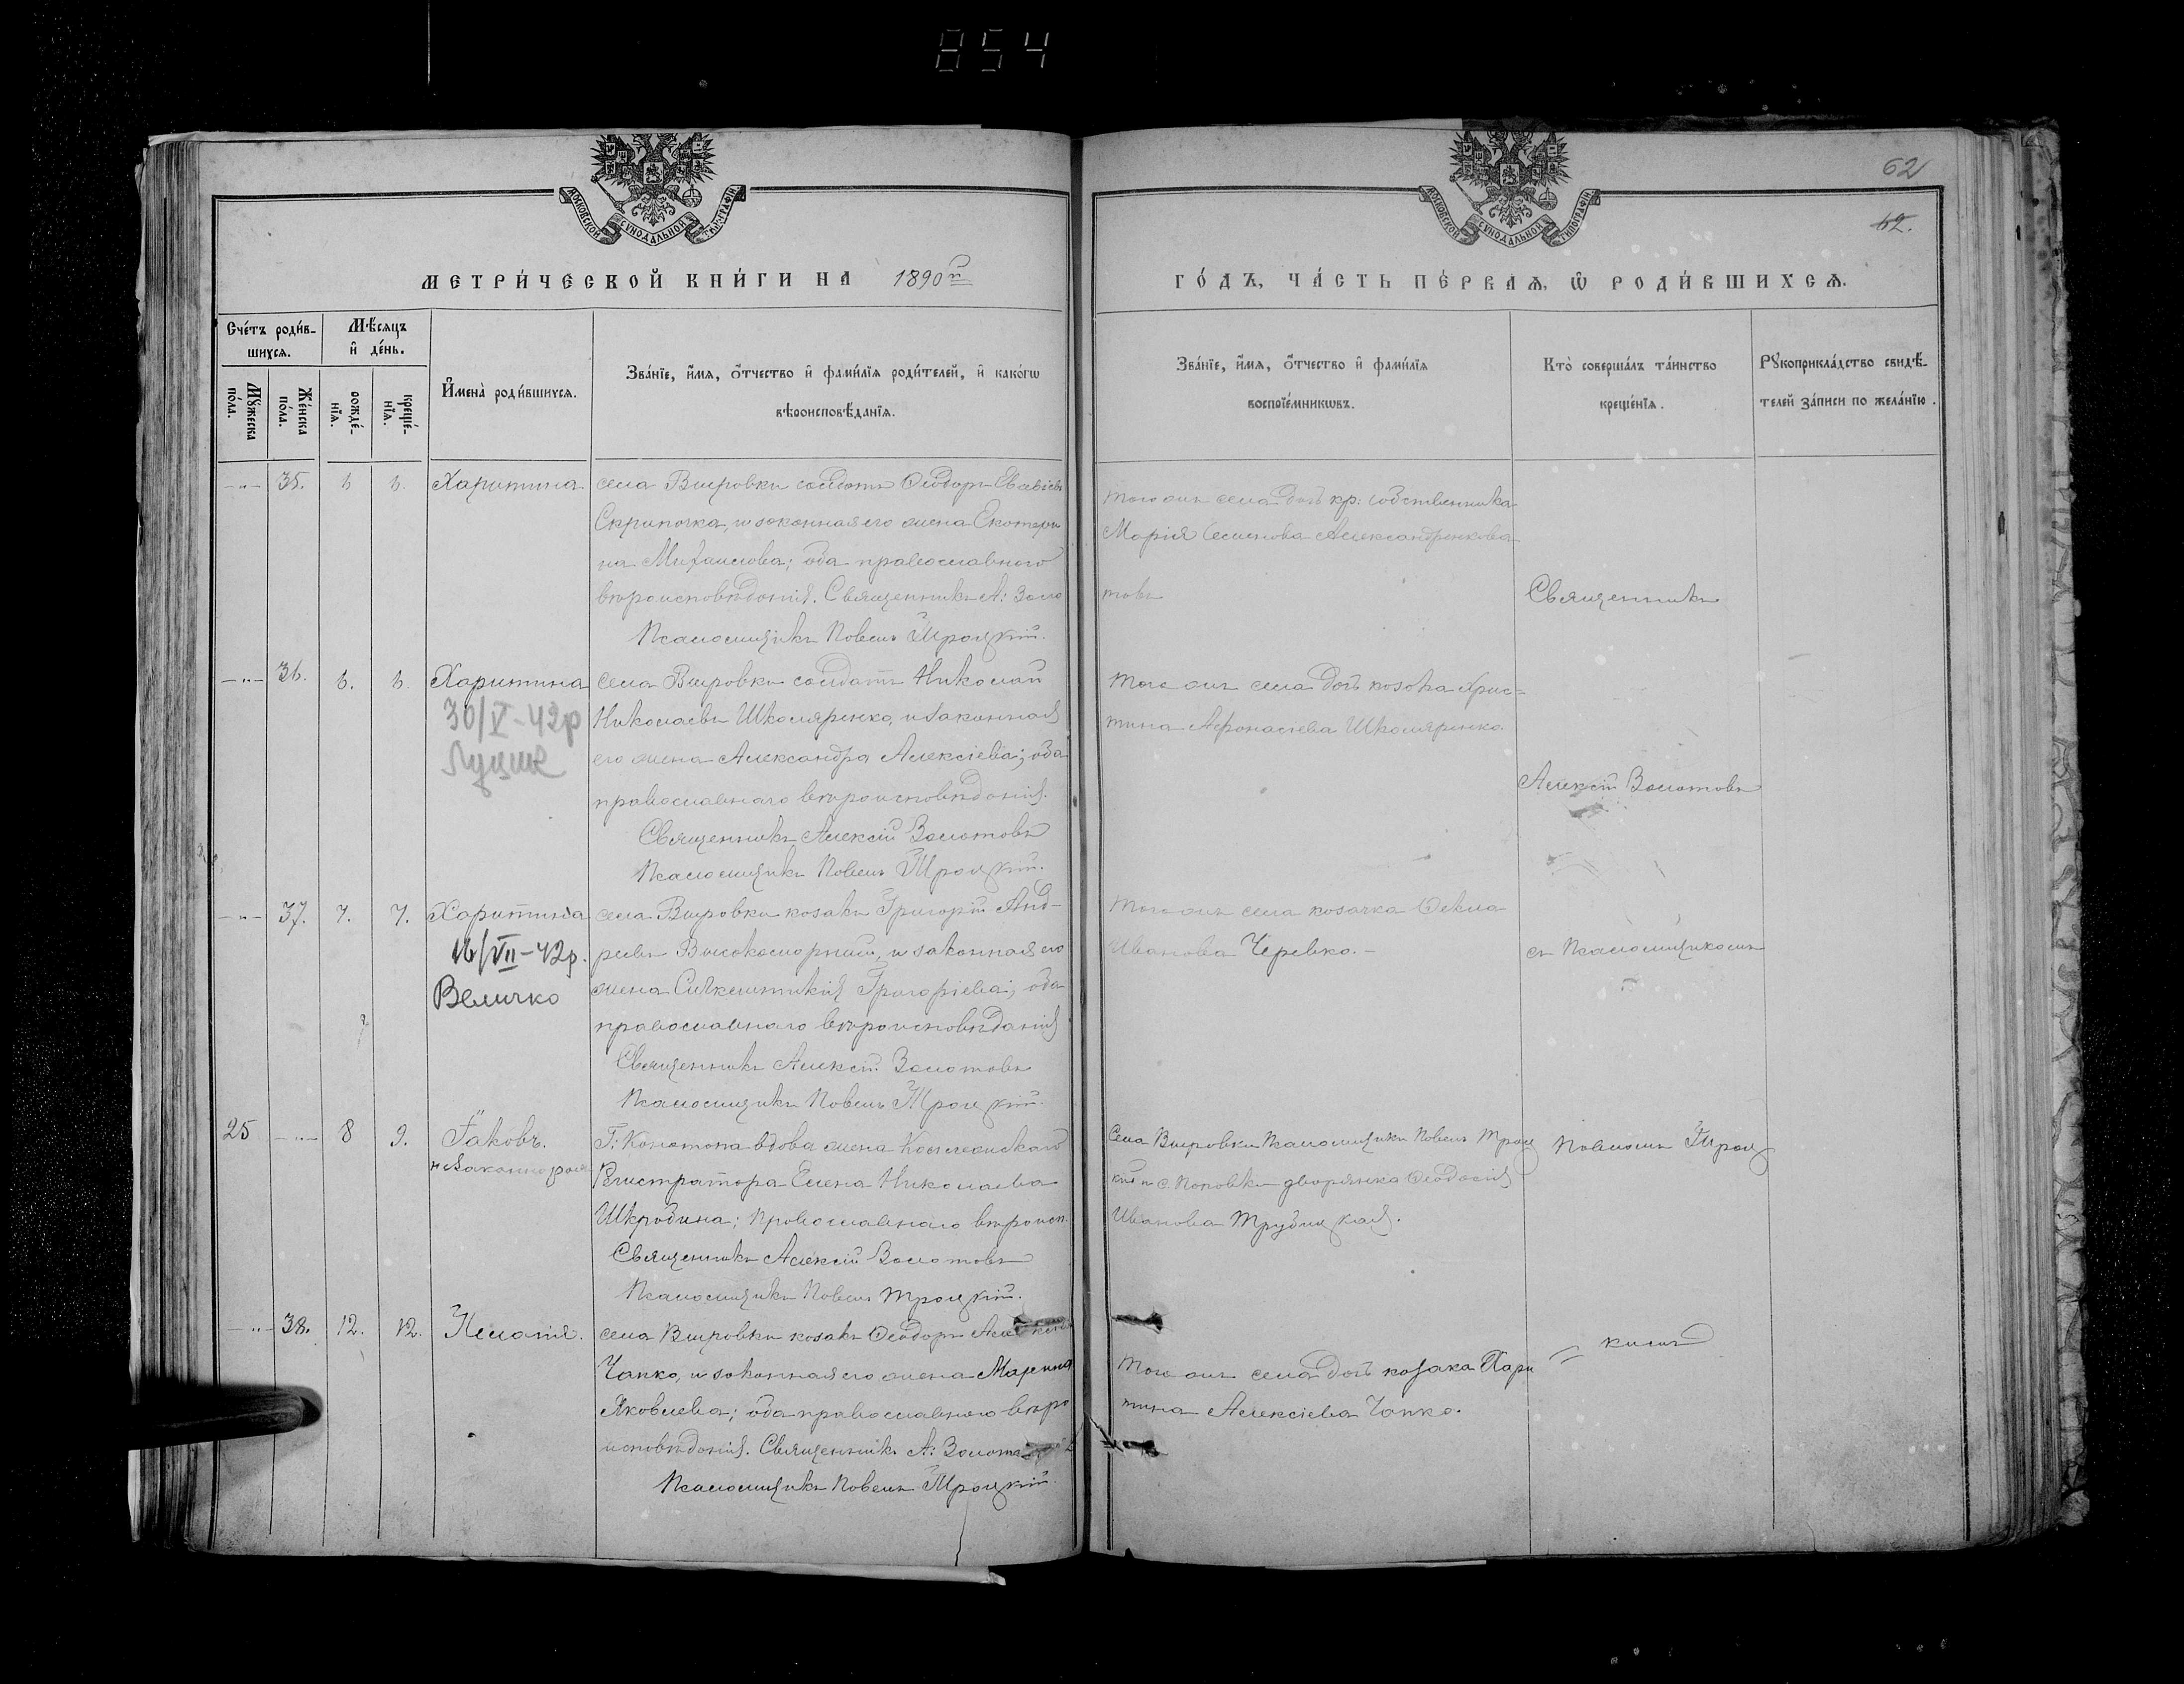 854
МОСКОВСКОЙ СУНОДАЛЬНОЙ ТИПОГРАФІИ
МОСКОВСКОЙ СУНОДАЛЬНОЙ ТИПОГРАФІИ
62
62.
МЕТРИ́ЧЕСКОЙ КНИ́ГИ НА 1890 г.
ГО́ДЪ, ЧА́СТЬ ПЕ́РВАѦ, Ѡ҆ РОДИ́ВШИХСѦ.
Сче́тъ роди́в-
шихсѧ.
Мѣ́сѧцъ
и҆ де́нь.
Мꙋ́жеска
по́ла.
Же́нска
по́ла.
рожде́-
нїѧ.
креще́-
нїѧ.
И҆мена̀ роди́вшихсѧ.
Зва́нїе, и҆́мѧ, ѻ҆́тчество и҆ фами́лїѧ роди́телей, и҆ како́гѡ
вѣроисповѣ́данїѧ.
Зва́нїе, и҆́мѧ, ѻ҆́тчество и҆ фами́лїѧ
воспрїе́мникѡвъ.
Кто̀ соверша́лъ та́инство
креще́нїѧ.
Рꙋкоприкла́дство свидѣ́-
телей за́писи по жела́нїю.
-"- 35. 6 6. Харитина
села Вировки солдатъ Ѳеодоръ
Скрипочка, и законная его жена Екатери
на Михаилова; оба православнаго
вѣроисповѣданія. Священникъ А: Золо
товъ
Псаломщикъ Павелъ Троцкій.
того же села дочь кр: собственника
Марія Семенова Александренкова
Священникъ
-"- 36. 6. 6. Харитина
30/V-42р
села Вировки солдатъ Николай
Николаевъ Школяренко, и законная
его жена Александра Алексіева; оба
православнаго вѣроисповѣданія.
Священникъ Алексій Золотовъ
Псаломщикъ Павелъ Троцкій.
того же села дочь козака Хрис=
тина Афонасіева Школяренко.
Алексій Золотовъ
-"- 37. 7. 7. Харитина
16/VII-42р.
Величко
села Вировки козакъ Григорій Анд-
реевъ Високоморний, и законная его
жена Григоріева; оба
православнаго вѣроисповѣданія
Священникъ Алексій Золотовъ
Псаломщикъ Павелъ Троцкій.
того же села козачка Ѳекла
Иванова Черевко.-
съ Псаломщикомъ
25 -"- 8 9. Іаковъ.
незаконнорож
Г: Конотопа вдова жена Коллежскаго
Регистратора Елена Николаева
Шкродина; православнаго вѣроисп.
Священникъ Алексій Золотовъ
Псаломщикъ Павелъ Троцкій.
Села Вировки Псаломщикъ Павелъ Троц
кій и с. Поповки дворянка Ѳеодосія
Иванова Трубицкая.
Павломъ Троц
-"- 38. 12. 12. Пелагія.
села Вировки козакъ Ѳеодоръ
Чапко, и законная его жена Марина
Яковлева; оба православнаго вѣро
исповѣданія. Священникъ А: Золотовъ
Псаломщикъ Павелъ Троцкій.
того же села дочь козака Хари
тина Алексіева Чапко.
= кимъ